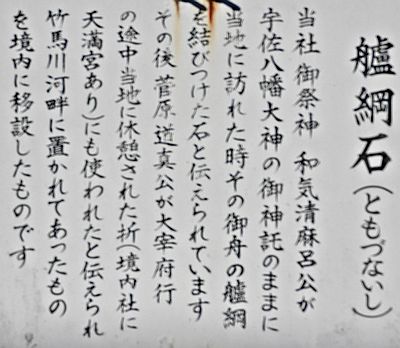 艫綱石(ともづないし)
当社 御祭神 和気清麻呂公が
宇佐八幡大神の御神託のままに
当地に訪れた時その御舟の艫綱
を結びつけた石と伝えられています
その後 菅原道真公が大宰府行
の途中当地に休憩された折(境内社に
天満宮あり)にも使われたと伝えられ
竹馬川河畔に置かれてあったもの
を境内に移設したものです